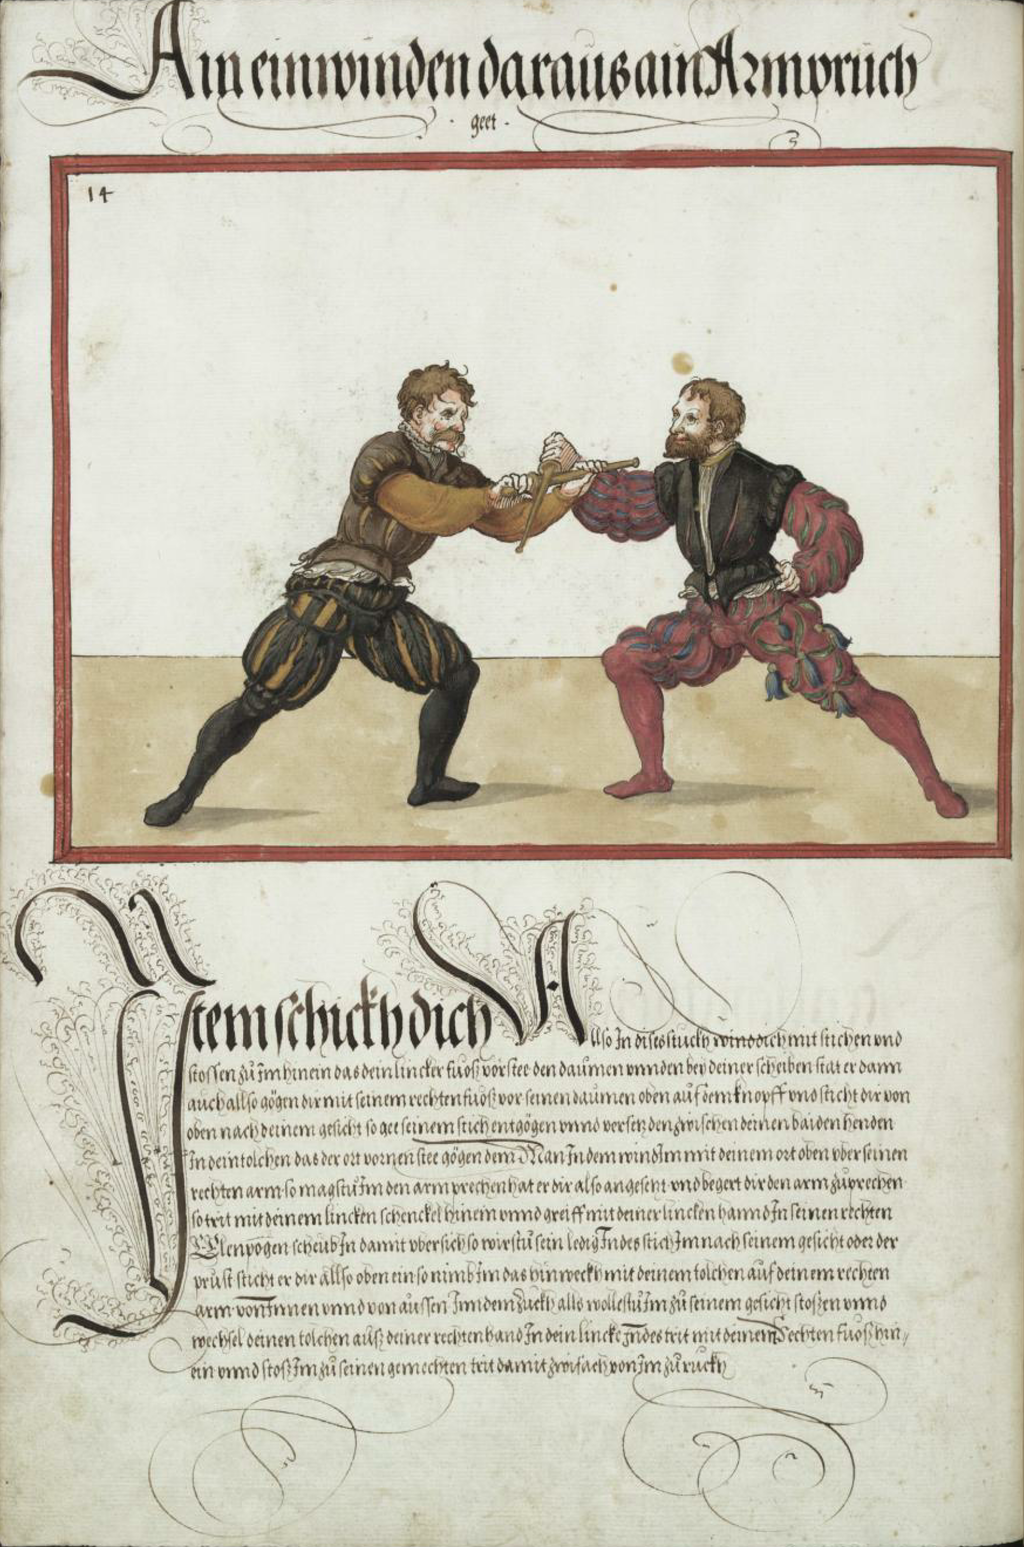 Ain einwinden daraus ain Armpruch
geet
14
Item schickh dich Allso In dises stuckh winddich mit stichen vnd
stossen zu Im hinein das dein lincker fuosz vor stee den daumen vnnden bey deiner scheiben stat er dann
auch allso gögen dir mit seinem rechten fuosz vor seinen daumen oben auf dem knopff vnd sticht dir von
oben nach deinem gesicht so gee seinem stich entgögen vnnd versetz den zwischen deinen baiden henden
In dein tolchen das der ort vornen stee gögen dem Man In dem wind Im mit deinem ort oben vber seinen
rechten arm so magstu Im den arm prechen hat er dir also angesetzt vnd begert dir den arm zuprechen
so trit mit deinem lincken schenckel hinein vnnd greiff mit deiner lincken hannd In seinen rechten
Elenpogen scheub In damit vber sich so wirstu sein ledig Indes stich Im nach seinem gesicht oder der
prust sticht er dir allso oben ein so nimb Im das hinweckh mit deinem tolchen auf deinem rechten
arm von Innen vnnd von aussen Inn dem zuckh alls wollestu Im zu seinem gesicht stoszen vnnd
wechsel deinen tolchen ausz deiner rechten hand In dein lincke Indes trit mit deinem Rechten fuosz hin,,
ein vnnd stosz Im zu seinen gemechten trit damit zwifach von Im zuruckh